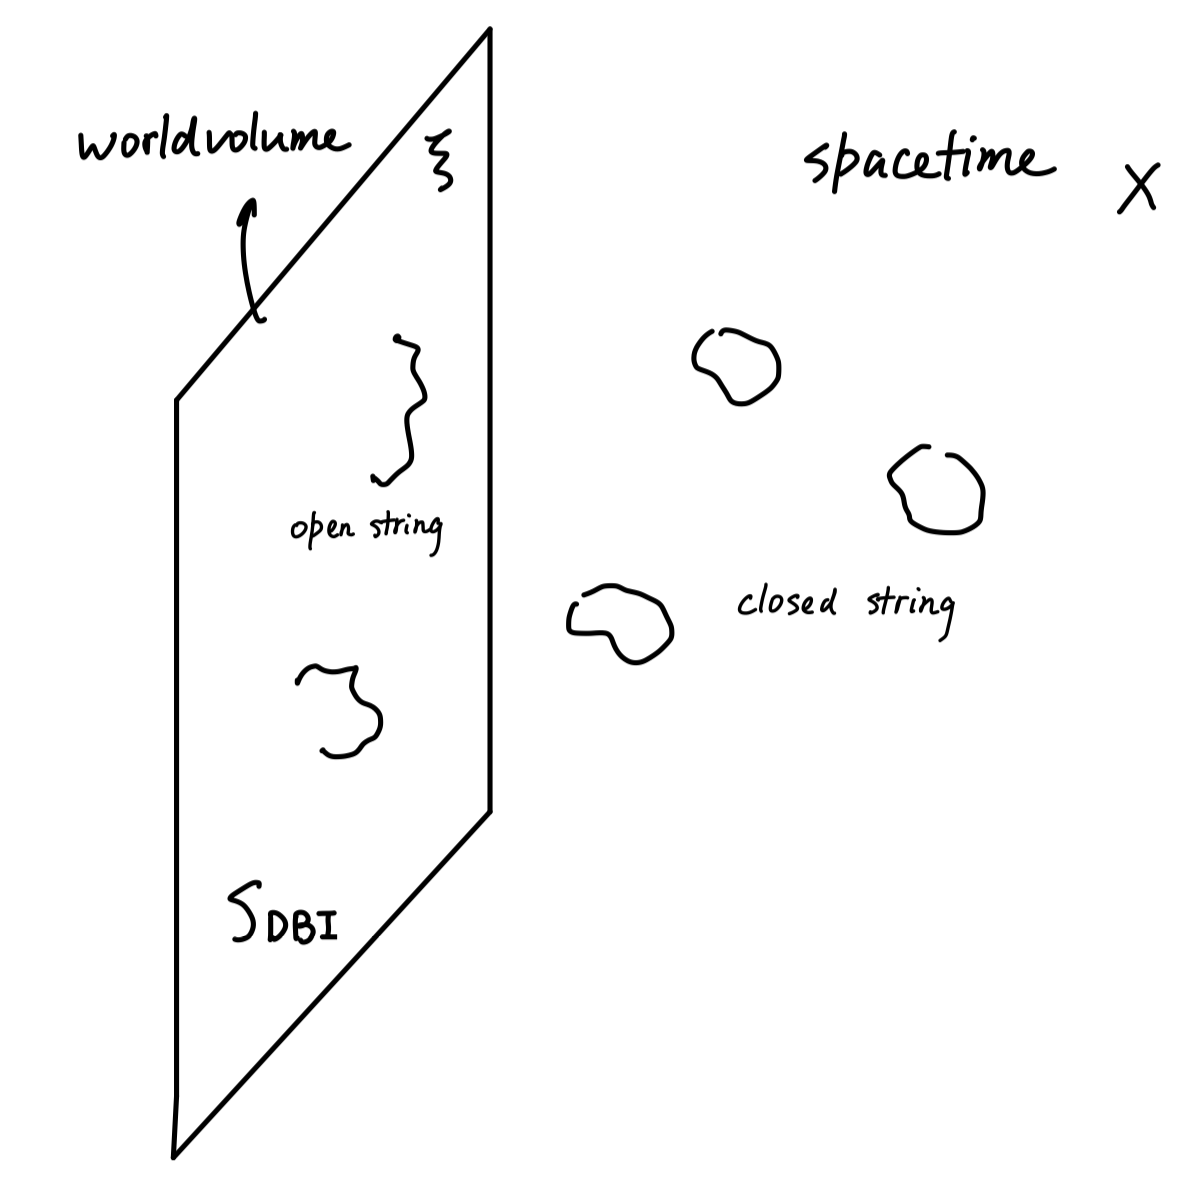 worldvolume
ξ
spacetime X
open string
closed string
S_DBI